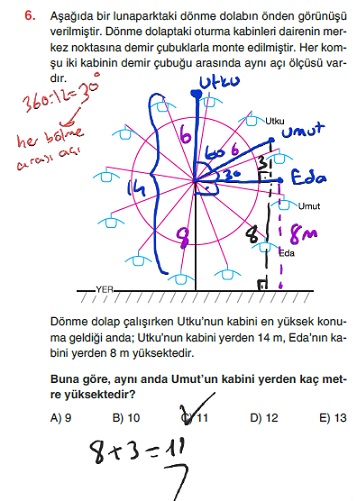 6. Aşağıda bir lunaparktaki dönme dolabın önden görünüşü
verilmiştir. Dönme dolaptaki oturma kabinleri dairenin mer-
kez noktasına demir çubuklarla monte edilmiştir. Her kom-
şu iki kabinin demir çubuğu arasında aynı açı ölçüsü var-
dır.
360:12=30°
her bölme
arası açı
Utku
Utku
Umut
6
60
6
3
14
30
Eda
Umut
8
8
8m
Eda
YER
Dönme dolap çalışırken Utku'nun kabini en yüksek konu-
ma geldiği anda; Utku'nun kabini yerden 14 m, Eda'nın ka-
bini yerden 8 m yüksektedir.
Buna göre, aynı anda Umut'un kabini yerden kaç met-
re yüksektedir?
A) 9 B) 10 C) 11 D) 12 E) 13
8+3=11